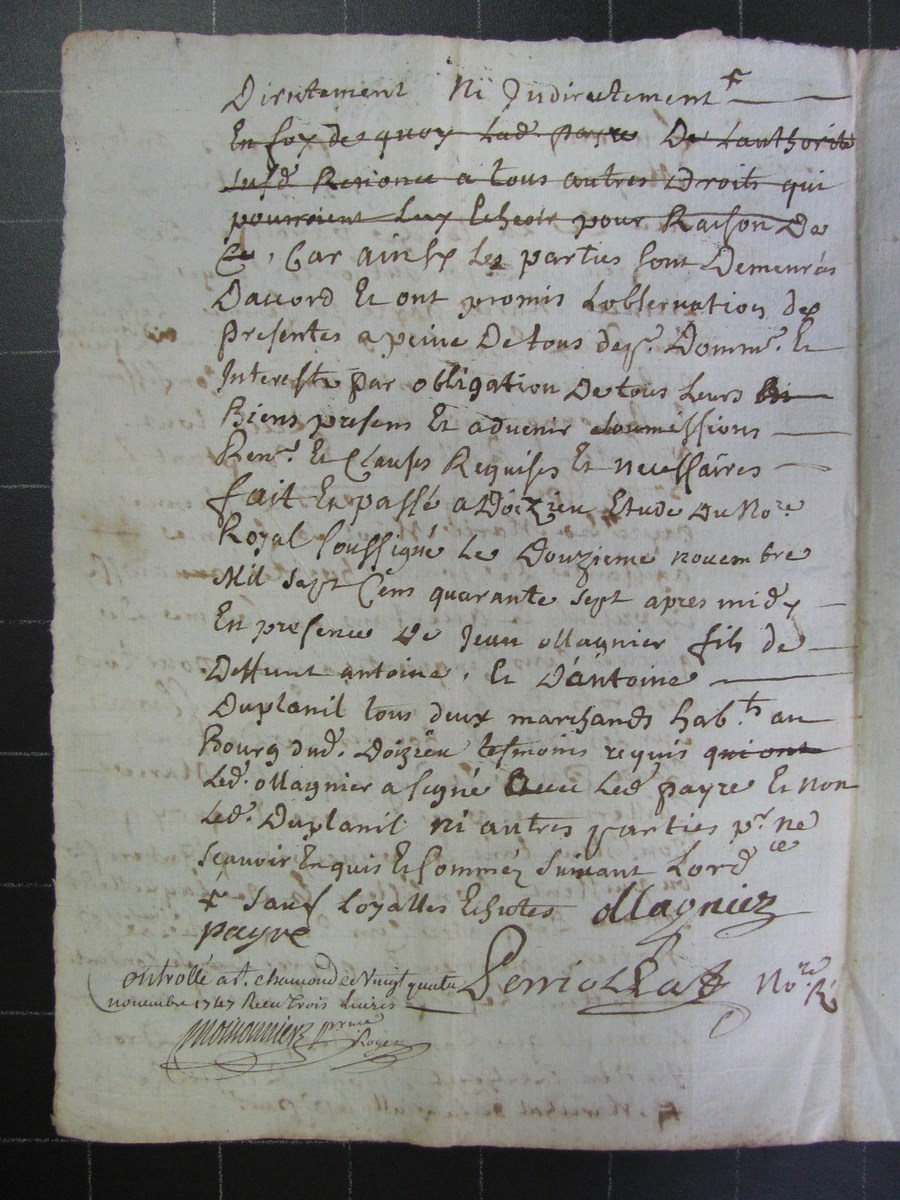 Directement Ni Jndirectement +
En foy de quoy Lad. payre De Lauthorité
susd. Renonce a tous autres Droits qui
pourroient Luy Echeoir pour Raison De
Ce, Car ainsy Les parties sont Demeurés
Daccord Et ont promis Lobservation des
presentes a peine De tous desp. Domm. Et
Interests par obligation De tous Leurs Bi
Biens presens Et advenir soumissions
Ren. Et Clauses Requises Et necessaires
fait Et passé a Doizieu Etude Du No.re
Royal soussigné Le Douzieme novembre
Mil sept Cens quarante sept apres midy
En presence De Jean ollagnier fils de
Deffunt antoine, Et D'antoine
Duplanil tous deux marchands hab.ts au
Bourg dud. Doizieu tesmoins requis qui ont
Led. ollagnier a signé avec Led. payre Et non
Led. Duplanil ni autres parties p.r ne
scavoir Enquis Et sommés suivant Lord.ce
+ sauf Loyalles Echutes ollagnier
payre
Controllé a St. chamond ce vingt quatre
novembre 1747 Receu trois Livres
Perriollat No.re R.